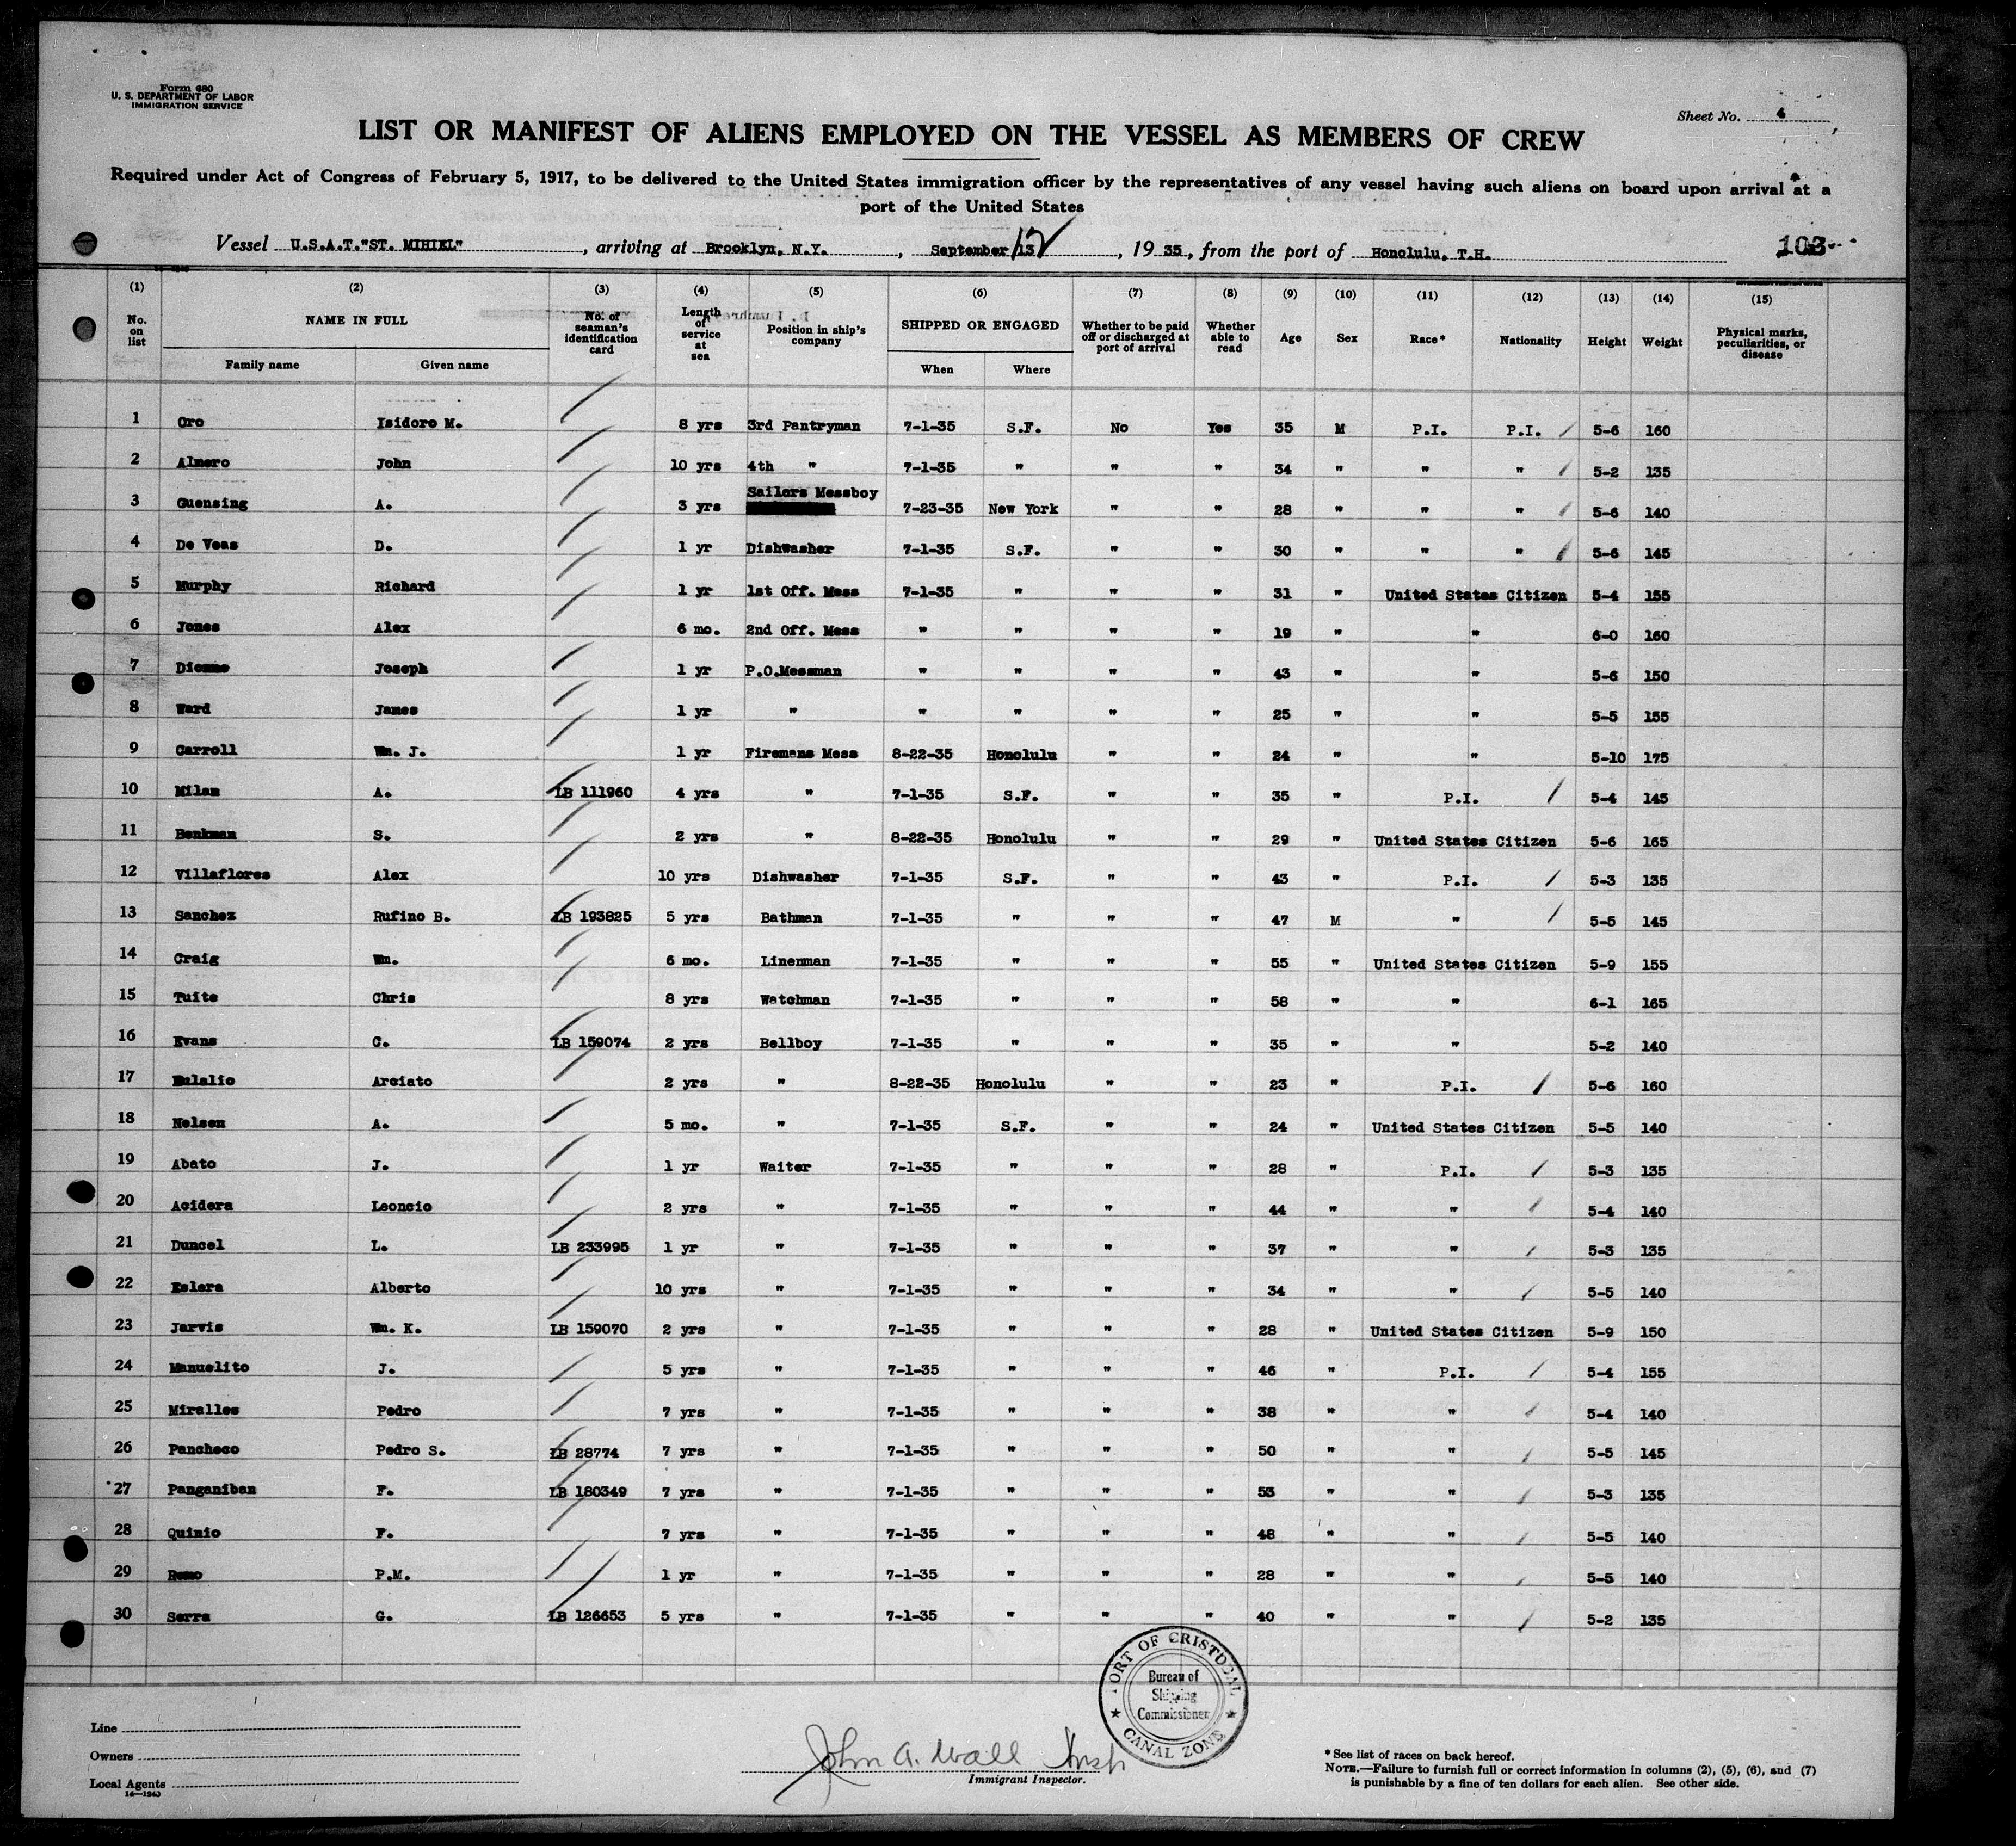 Form 680
U. S. DEPARTMENT OF LABOR
IMMIGRATION SERVICE
Sheet No. 4
LIST OR MANIFEST OF ALIENS EMPLOYED ON THE VESSEL AS MEMBERS OF CREW
Required under Act of Congress of February 5, 1917, to be delivered to the United States immigration officer by the representatives of any vessel having such aliens on board upon arrival at a
port of the United States
Vessel U.S.A.T."ST. MIHIEL", arriving at Brooklyn, N.Y., September 13, 1935, from the port of Honolulu, T.H. 103
(1) (2) (3) (4) (5) (6) (7) (8) (9) (10) (11) (12) (13) (14) (15)
No. on list NAME IN FULL Family name Given name No. of seaman's identification card Length of service at sea Position in ship's company SHIPPED OR ENGAGED When Where Whether to be paid off or discharged at port of arrival Whether able to read Age Sex Race* Nationality Height Weight Physical marks, peculiarities, or disease
1 Oro Isidoro M. 8 yrs 3rd Pantryman 7-1-35 S.F. No Yes 35 M P.I. P.I. 5-6 160
2 Almero John 10 yrs 4th " 7-1-35 " " " 34 " " " 5-2 135
3 Guensing A. 3 yrs Sailors Messboy 7-23-35 New York " " 28 " " " 5-6 140
4 De Veas D. 1 yr Dishwasher 7-1-35 S.F. " " 30 " " " 5-6 145
5 Murphy Richard 1 yr 1st Off. Mess 7-1-35 " " " 31 " United States Citizen 5-4 155
6 Jones Alex 6 mo. 2nd Off. Mess " " " " 19 " " 6-0 160
7 Joseph 1 yr P.O.Messman " " " " 43 " " 5-6 150
8 Ward James 1 yr " " " " " 25 " " 5-5 155
9 Carroll Wm. J. 1 yr Firemans Mess 8-22-35 Honolulu " " 24 " " 5-10 175
10 Milan A. LB 111960 4 yrs " 7-1-35 S.F. " " 35 " P.I. 5-4 145
11 Benkman S. 2 yrs " 8-22-35 Honolulu " " 29 " United States Citizen 5-6 165
12 Villaflores Alex 10 yrs Dishwasher 7-1-35 S.F. " " 43 " P.I. 5-3 135
13 Sanchez Rufino B. LB 193825 5 yrs Bathman 7-1-35 " " " 47 M " 5-5 145
14 Craig Wm. 6 mo. Linenman 7-1-35 " " " 55 " United States Citizen 5-9 155
15 Tuite Chris 8 yrs Watchman 7-1-35 " " " 58 " " 6-1 165
16 Evans C. LB 159074 2 yrs Bellboy 7-1-35 " " " 35 " " 5-2 140
17 Eulalio Arciato 2 yrs " 8-22-35 Honolulu " " 23 " P.I. 5-6 160
18 Nelsen A. 5 mo. " 7-1-35 S.F. " " 24 " United States Citizen 5-5 140
19 Abato J. 1 yr Waiter 7-1-35 " " " 28 " P.I. 5-3 135
20 Acidera Leoncio 2 yrs " 7-1-35 " " " 44 " " 5-4 140
21 Duncel L. LB 233995 1 yr " 7-1-35 " " " 37 " " 5-3 135
22 Eslera Alberto 10 yrs " 7-1-35 " " " 34 " " 5-5 140
23 Jarvis Wm. K. LB 159070 2 yrs " 7-1-35 " " " 28 " United States Citizen 5-9 150
24 Manuelito J. 5 yrs " 7-1-35 " " " 46 " P.I. 5-4 155
25 Miralles Pedro 7 yrs " 7-1-35 " " " 38 " " 5-4 140
26 Pancheco Pedro S. LB 28774 7 yrs " 7-1-35 " " " 50 " " 5-5 145
27 Panganiban F. LB 180349 7 yrs " 7-1-35 " " " 53 " " 5-3 135
28 Quinio F. 7 yrs " 7-1-35 " " " 48 " " 5-5 140
29 Remo P.M. 1 yr " 7-1-35 " " " 28 " " 5-5 140
30 Serra G. LB 126653 5 yrs " 7-1-35 " " " 40 " " 5-2 135
PORT OF CRISTOBAL
Bureau of
Shipping
Commissioner
CANAL ZONE
Line
Owners
Local Agents
14—1240
John A. Wall Insp
Immigrant Inspector.
*See list of races on back hereof.
NOTE.—Failure to furnish full or correct information in columns (2), (5), (6), and (7)
is punishable by a fine of ten dollars for each alien. See other side.